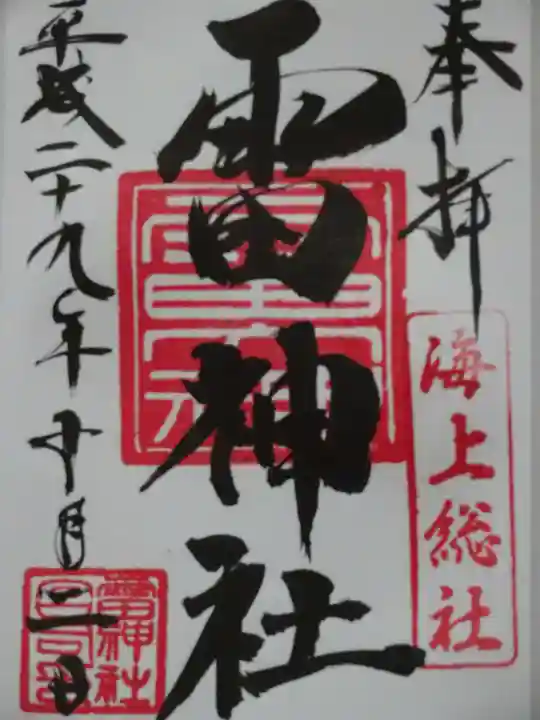 奉拝
海上総社
雷神社
平成二十九年十月二日
雷神社